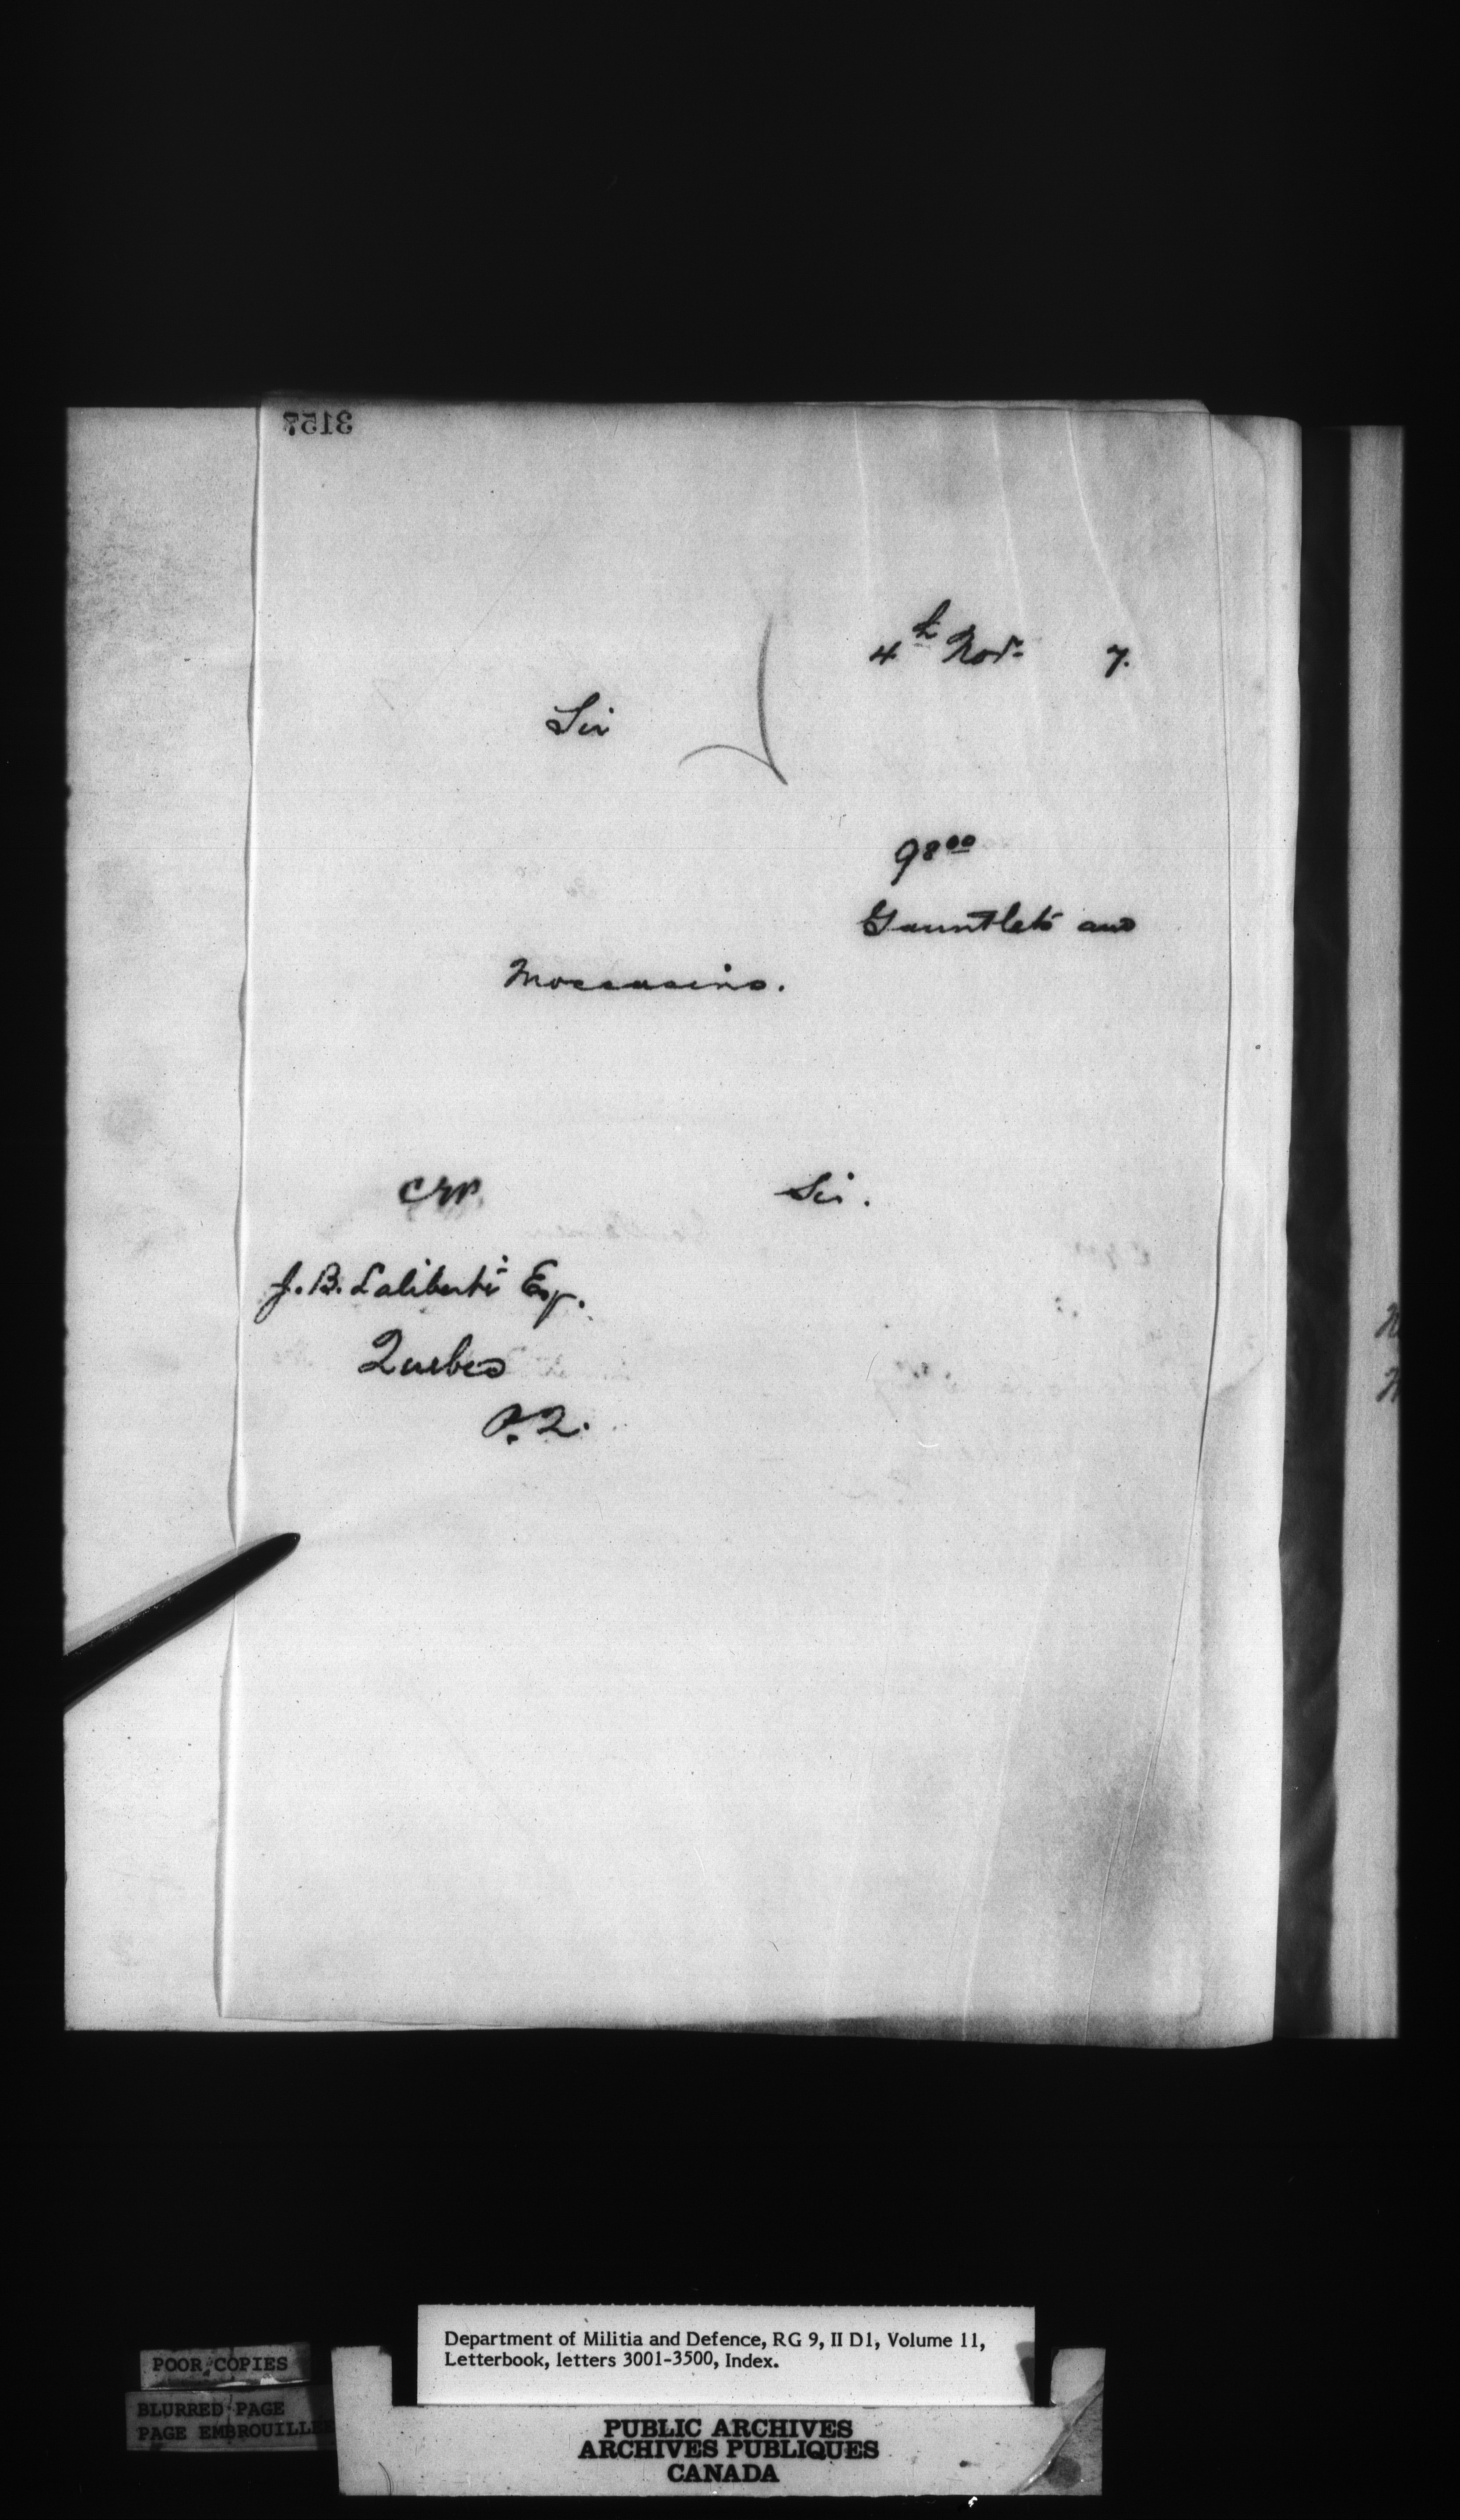 3157
4th Nov. 7.
Sir
98 00
Gauntlets and
Moccasins.
Sir.
J. B. Laliberté Esq.
Quebec
P. Q.
Department of Militia and Defence, RG 9, II D1, Volume 11,
Letterbook, letters 3001-3500, Index.
POOR COPIES
BLURRED PAGE
PAGE EMBROUILLEE
PUBLIC ARCHIVES
ARCHIVES PUBLIQUES
CANADA